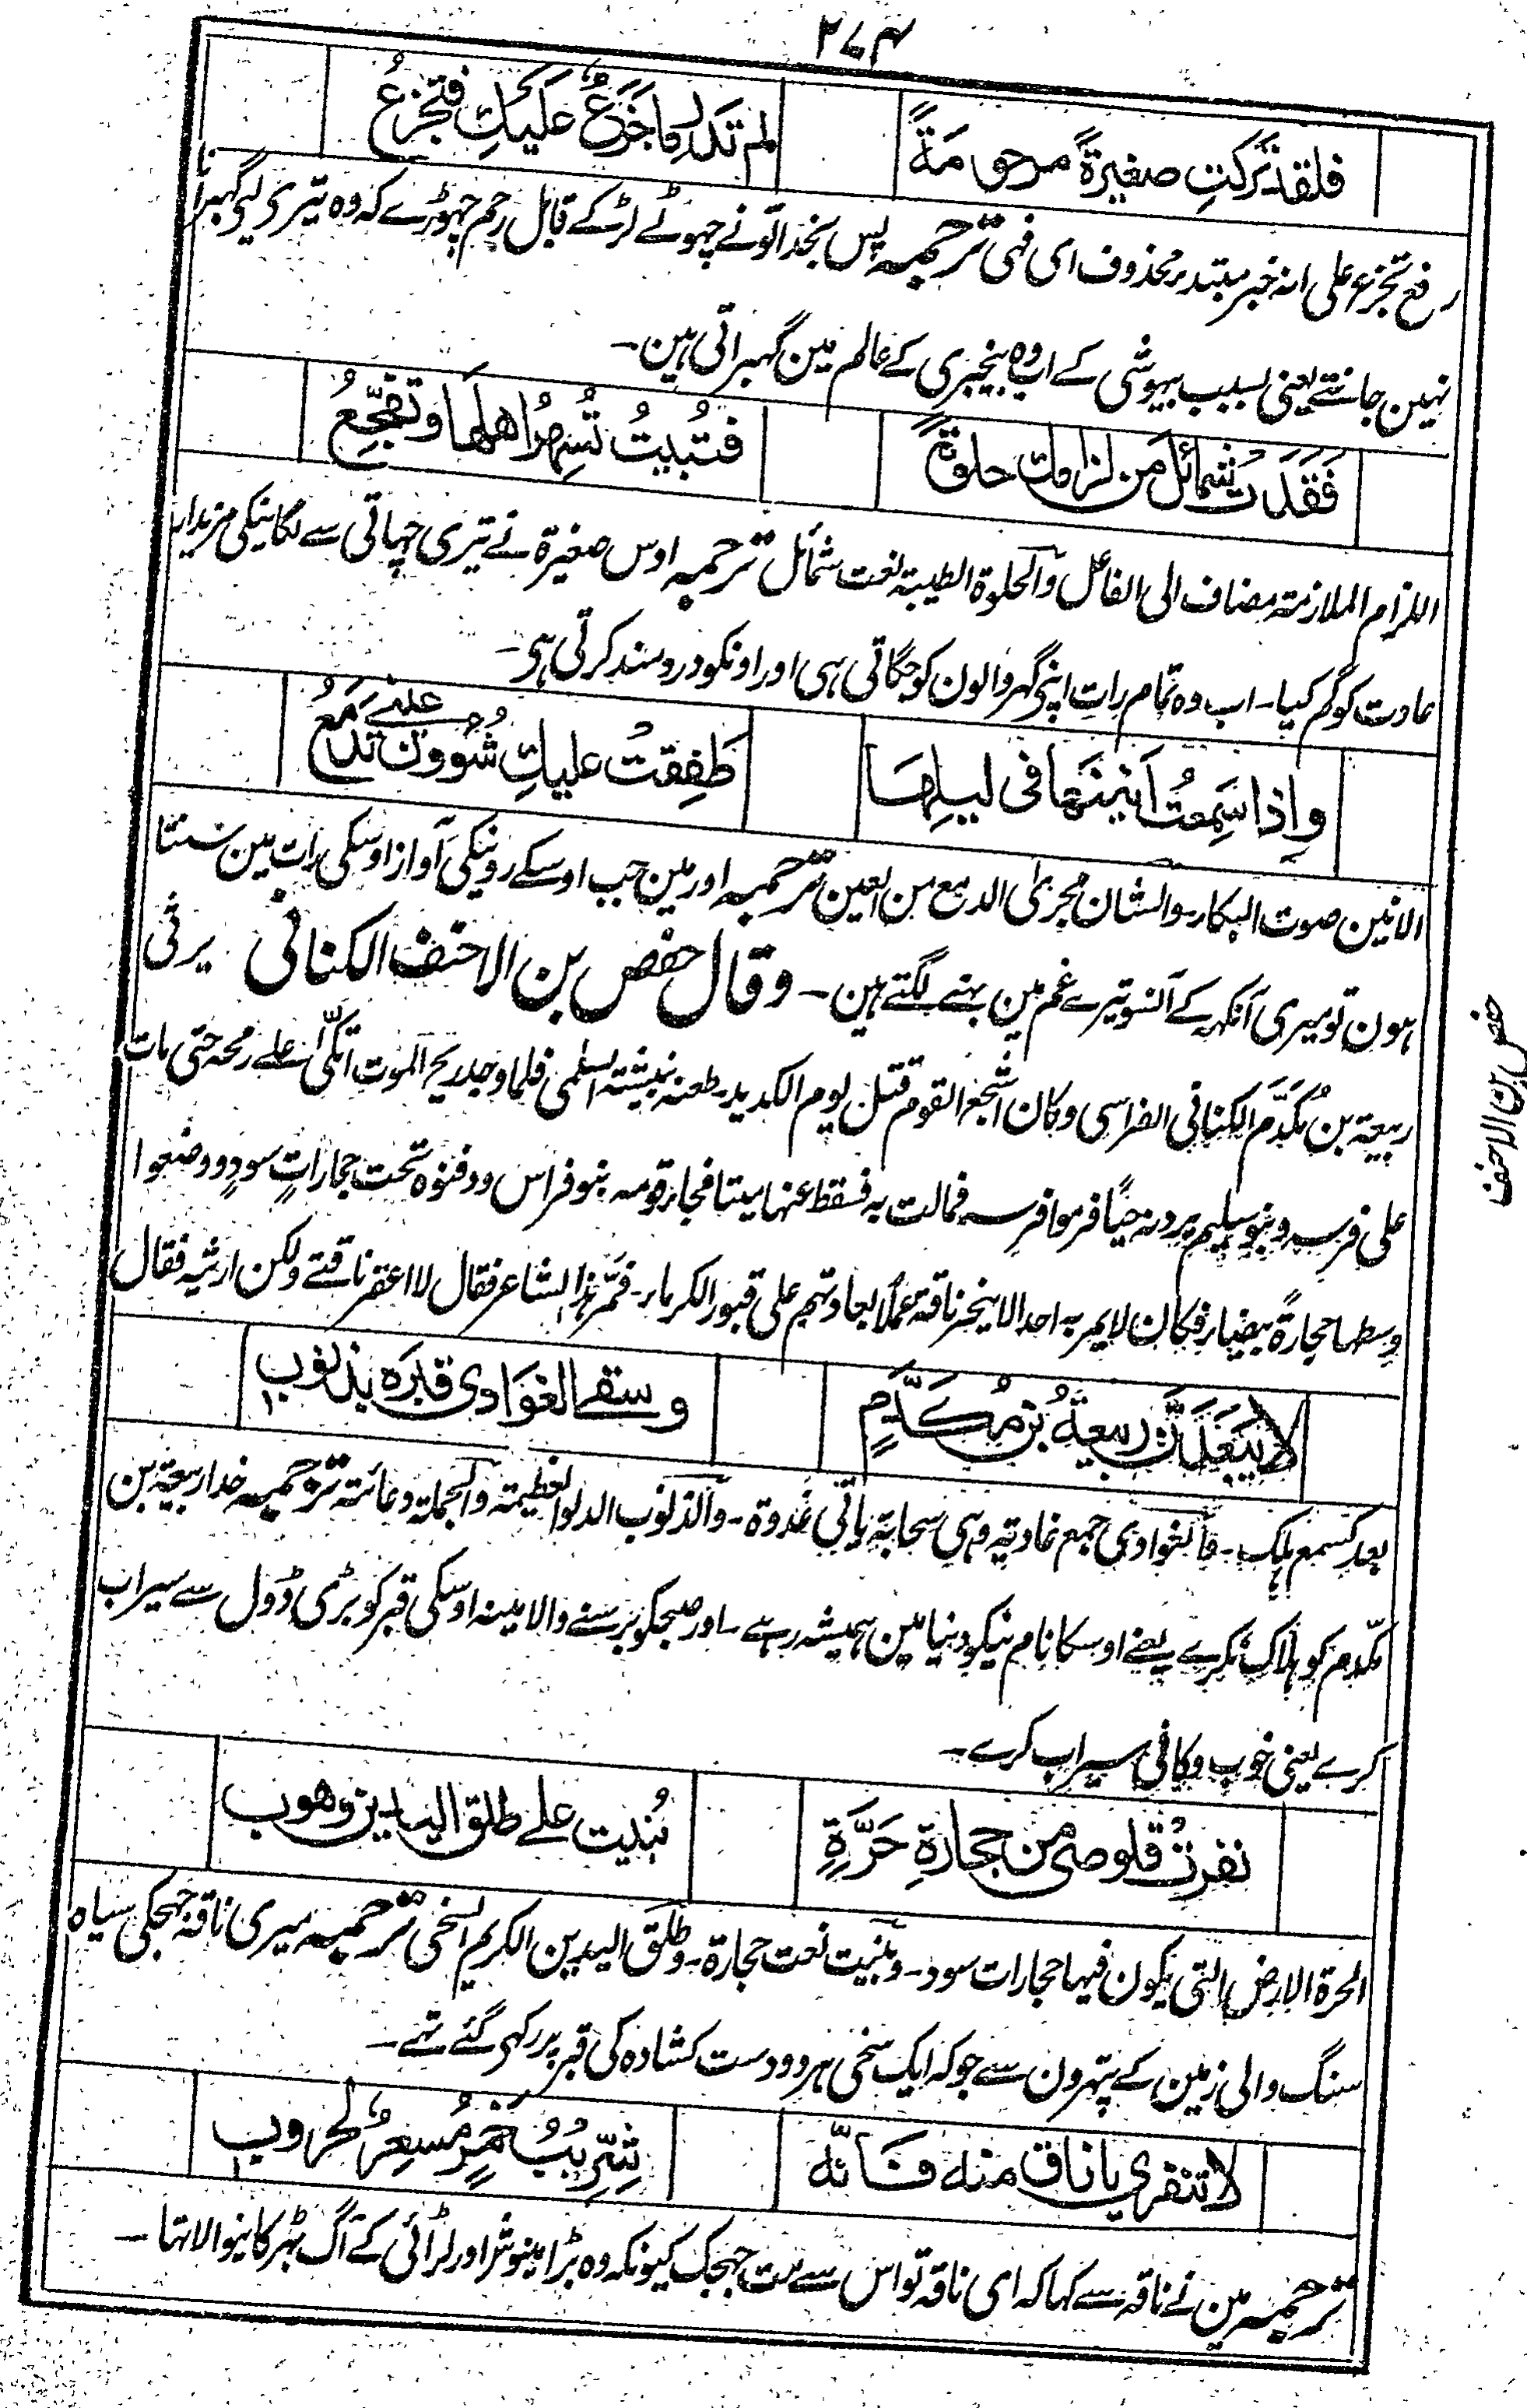 ۲۷۴
فلقد تركتِ صغيرةً مرحومةً لم تدرِ ما جَزَعٌ عليكِ فتجزعُ
رفع تجزع على انه خبر مبتدء محذوف اى فهى ترجمہ پس بخدا تونے چھوٹے لڑکے قابل رحم چھوڑے کہ وہ تیری لیے گھبرانا
نہین جانتے یعنی بسبب بیہوشی کے اب وہ بیخبری کے عالم مین گھبراتی ہین۔
فَقَدَتْ شمائلَ من لزامك حلوةً فتبيتُ تُسهرُ اهلها وتفجّعُ
اللزام الملازمة مضاف الى الفاعل والحلوة الطيبة نعت شمائل ترجمہ اوس صغیرۃ نے تیری چہاتی سے لگانیکی مزیدار
عادت کو گم کیا۔ اب وہ تمام رات اپنی گھر والون کو جگاتی ہی اور اونکو دردمند کرتی ہی۔
واذا سمعتُ انينَها فى ليلها طفِقتْ عليكِ شُوونُ عينى تدمعُ
الانين صوت البكاء۔ والشان مجرى الدمع من العين ترجمہ اور مین جب اوسکے رونیکی آواز اوسکی رات مین سنتا
ہون تو میری آنکھہ کے آنسو تیرے غم مین بہنے لگتے ہین۔ وقال حفص بن الاحنف الكنانى يرثى
ربيعة بن مُكَدَّم الكنانى الفراسى وكان اشجع القوم قتل يوم الكديد۔ طعنه نبيشة السلمى فلما وجد ريح الموت اتكّأ على رمحه حتى مات
على فرسه وبنو سليم يرونه حيًا فرموا فرسه فمالت به فسقط عنها ميتا فجاء قومه بنو فراس ودفنوه تحت حجاراتٍ سودٍ ووضعوا
وسطها حجارةً بيضاء فكان لا يمر به احد الا ينحر ناقةً عملًا بعادتهم على قبور الكرماء۔ فمر هذا الشاعر فقال لا اعقر ناقتى ولكن ارثيه فقال
لا يَبعَدَنَّ ربيعةُ بن مُكَدَّمِ وسقى الغوادى قبرَه بذنوبِ
بعد كسمع هلك۔ فالغوادى جمع غادية وهى سحابة ياتى غدوة۔ والذنوب الدلو العظيمة والجملة دعائية ترجمہ خدا ربیعۃ بن
مکدم کو ہلاک نکرے یعنے اوسکا نام نیکو دنیا مین ہمیشہ رہے۔ اور صبحکو برسنے والا مینہ اوسکی قبر کو بڑی ڈول سے سیراب
کرے یعنی خوب وکافی سیراب کرے۔
نفرتْ قلوصى من حجارةِ حَرَّةٍ بُنيت على طلق اليدين وهوب
الحرة الارض التى يكون فيها حجارات سود۔ وبنيت نعت حجارة۔ وطلق اليدين الكريم السخى ترجمہ میری ناقہ جھجکی سیاہ
سنگ والی زمین کے پتہرون سے جو کہ ایک سخی ہر دو دست کشادہ کی قبر پر رکھی گئے تہے۔
لا تنفرى يا ناق منه فانه شِرِّيبُ خمرٍ مسعرٌ لحروب
ترجمہ مین نے ناقہ سے کہا کہ ای ناقہ تو اس سے مت جھجک کیونکہ وہ بڑا مینوش اور لڑائی کے آگ بہڑکانیوالا تہا۔
حفص بن الاحنف